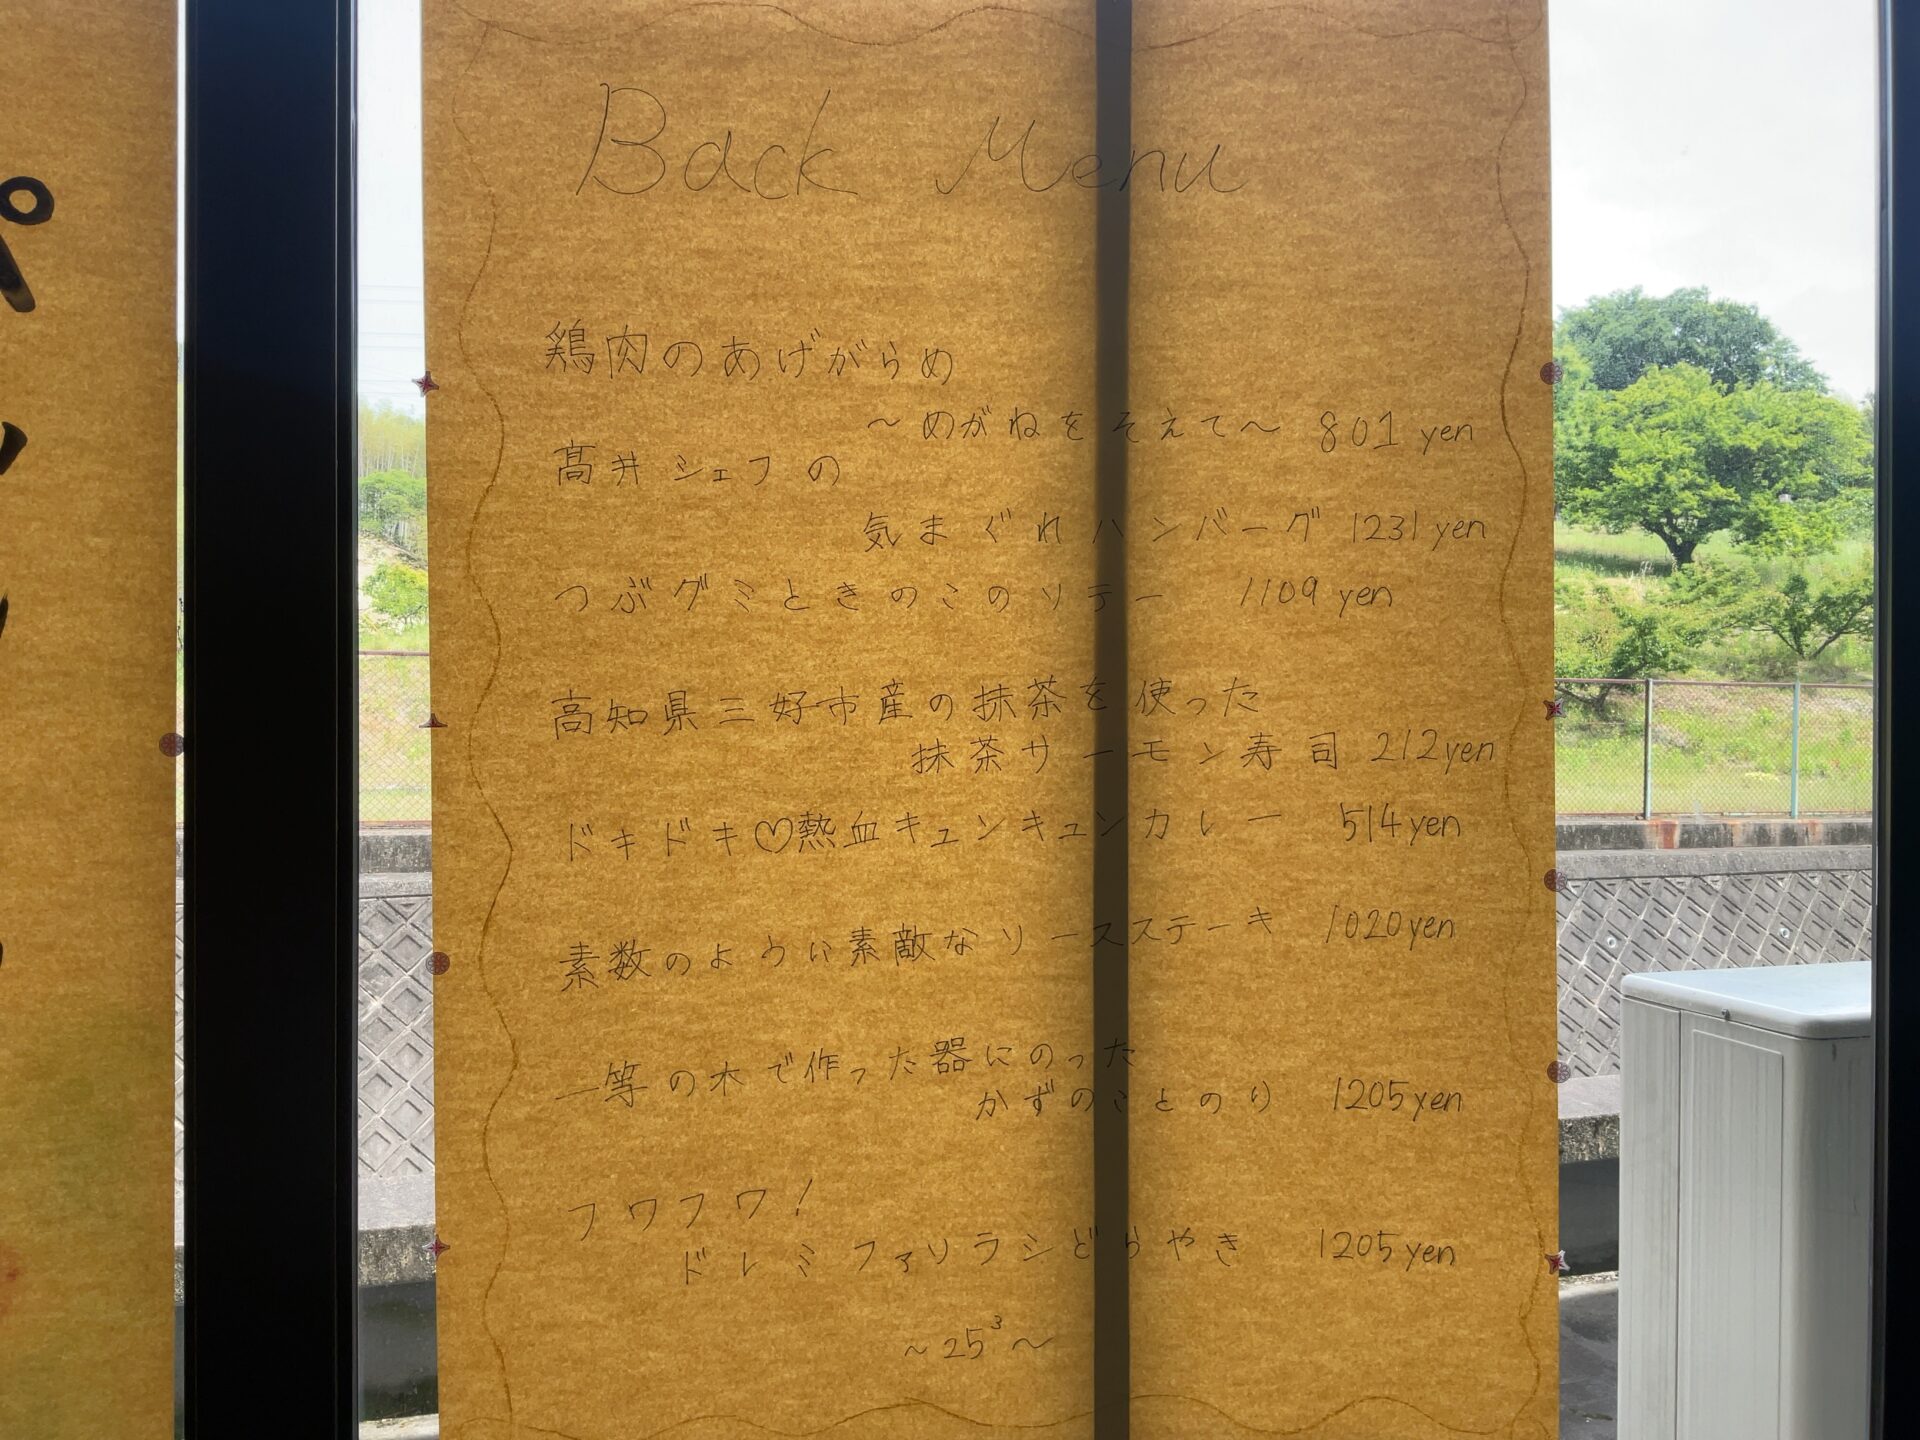 Back Menu
鶏肉のあげがらめ
〜めがねをそえて〜 801 yen
髙井シェフの
気まぐれハンバーグ 1231 yen
つぶグミときのこのソテー 1109 yen
高知県三好市産の抹茶を使った
抹茶サーモン寿司 212yen
ドキドキ♡熱血キュンキュンカレー 514yen
素数のように素敵なソースステーキ 1020yen
一等の木で作った器にのった
かずのことのり 1205yen
フワフワ!
ドレミファソラシどらやき 1205yen
〜25³〜